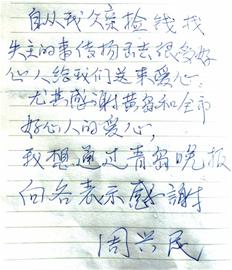 自从我父亲捡钱找
失主的事传扬出去很多好
心人给我们送来爱心.
尤其感谢黄岛和全市
好心人的爱心,
我想通过青岛晚报
向各表示感謝
周兴民